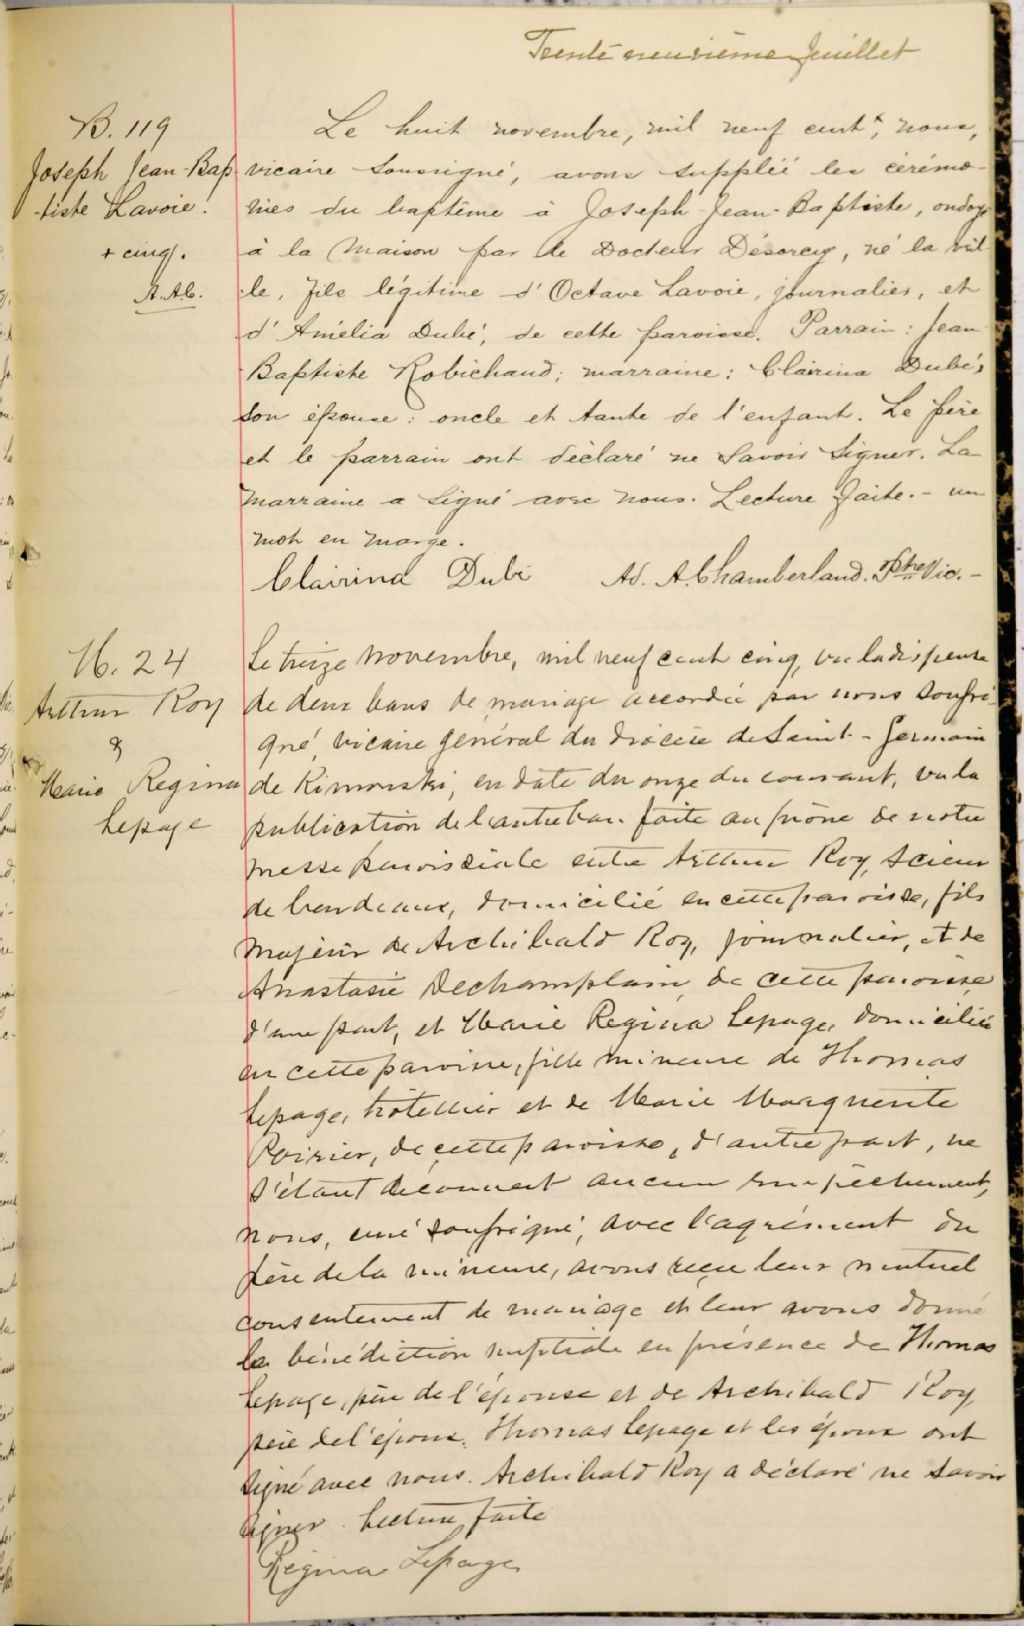 Trente neuvième feuillet
B. 119
Joseph Jean-Bap
-tiste Lavoie.
+ cinq.
A.A.C.
Le huit novembre, mil neuf cent +, nous,
vicaire soussigné, avons suppléé les cérémo-
nies du baptême à Joseph Jean-Baptiste, ondoyé
à la maison par le Docteur Désorcy, né la veil
le, fils légitime d'Octave Lavoie, journalier, et
d'Amélia Dubé, de cette paroisse. Parrain: Jean
Baptiste Robichaud; marraine: Clairina Dubé,
son épouse: oncle et tante de l'enfant. Le père
et le parrain ont déclaré ne savoir signer. La
marraine a signé avec nous. Lecture faite. - un
mot en marge.
Clairina Dubé Ad. A. Chamberland. Ptre Vic. -
M. 24
Arthur Roy
&
Marie Regina
Lepage
Le treize novembre, mil neuf cent cinq, vu la dispense
de deux bans de mariage accordée par nous soussi-
gné, vicaire général du diocèse de Saint-Germain
de Rimouski, en date du onze du courant, vu la
publication de l'autre ban faite au prône de notre
messe paroissiale entre Arthur Roy, scieur
de bardeaux, domicilié en cette paroisse, fils
majeur de Archibald Roy, journalier, et de
Anastasie Dechamplain, de cette paroisse
d'une part, et Marie Regina Lepage, domiciliée
en cette paroisse, fille mineure de Thomas
Lepage, hôtellier et de Marie Marguerite
Poirier, de cette paroisse, d'autre part, ne
s'étant découvert aucun empêchement,
nous, curé soussigné, avec l'agrément du
père de la mineure, avons reçu leur mutuel
consentement de mariage et leur avons donné
la bénédiction nuptiale en présence de Thomas
Lepage, père de l'épouse et de Archibald Roy
père de l'époux. Thomas Lepage et les époux ont
signé avec nous. Archibald Roy a déclaré ne savoir
signer. Lecture faite
Régina Lepage